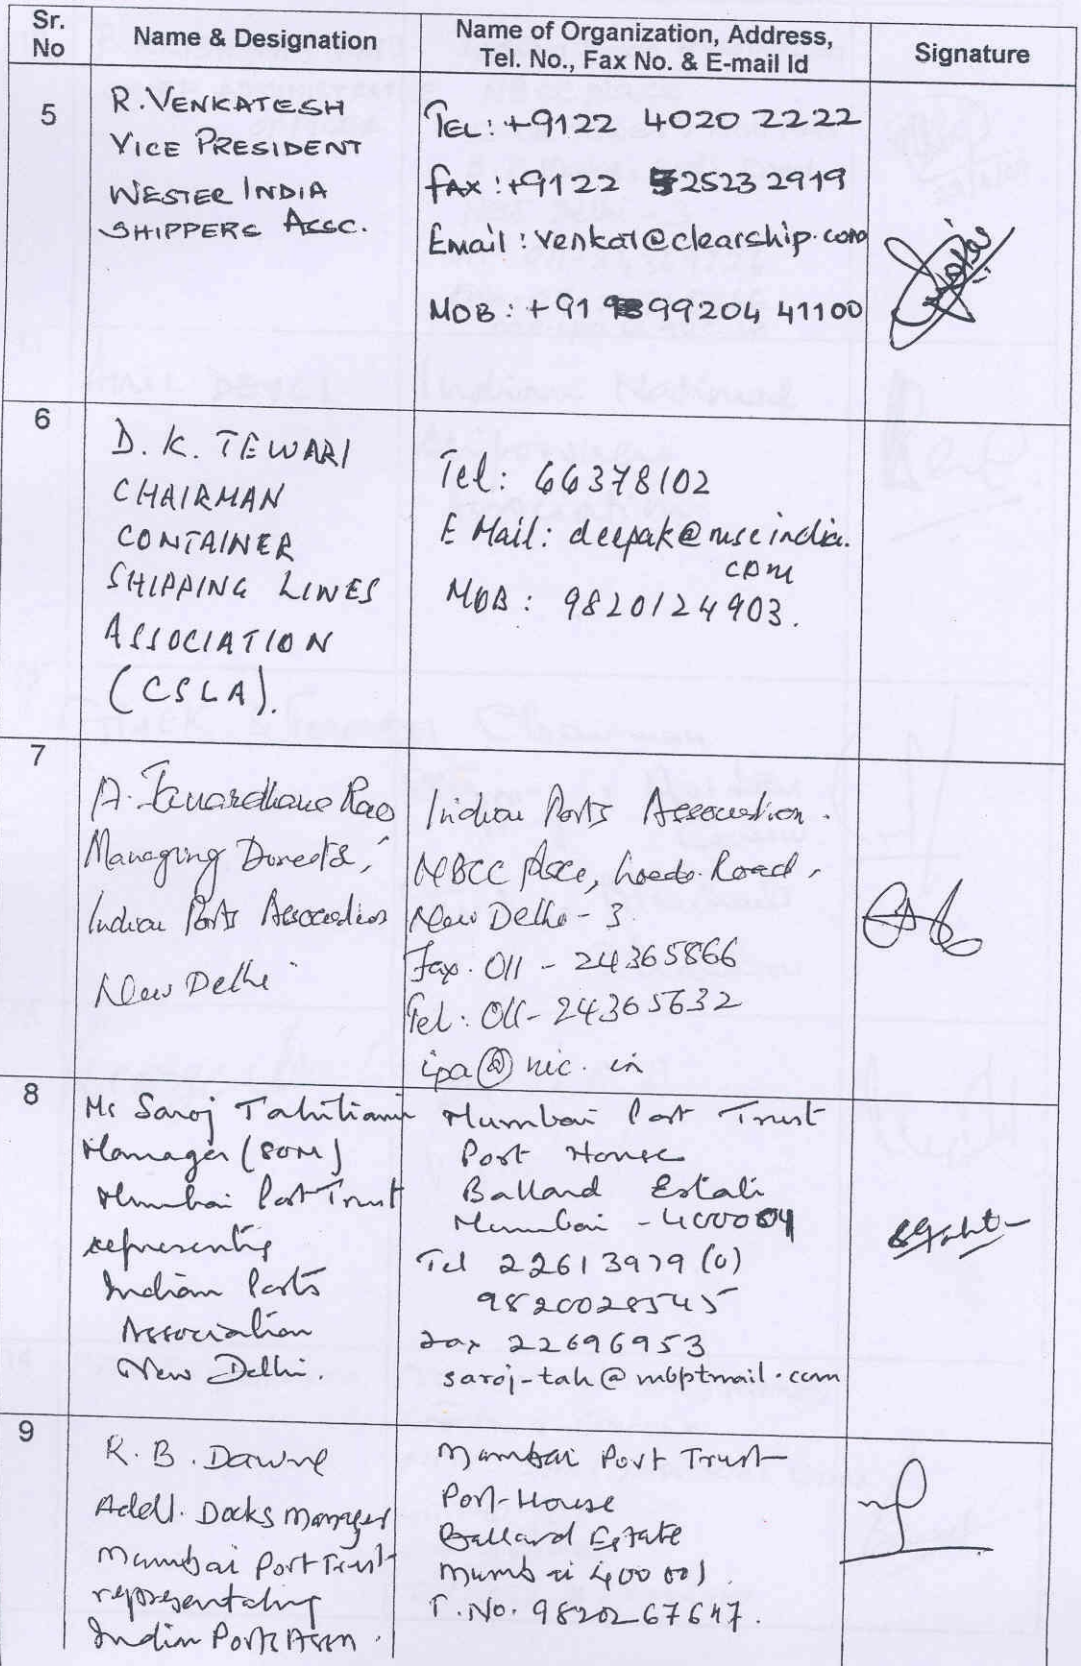 Sr. No
Name & Designation
Name of Organization, Address, Tel. No., Fax No. & E-mail Id
Signature
5
R. VENKATESH
VICE PRESIDENT
WESTER INDIA
SHIPPERS ASSC.
TEL: +9122 4020 2222
FAX: +9122 2523 2919
Email: venkat@clearship.com
MOB: +91 99204 41100
6
D. K. TEWARI
CHAIRMAN
CONTAINER
SHIPPING LINES
ASSOCIATION
(CSLA).
Tel: 66378102
E Mail: deepak@mscindia.
com
MOB: 9820124903.
7
A. Janardhana Rao
Managing Director,
Indian Ports Association
New Delhi
Indian Ports Association.
NBCC Place, Lodhi Road,
New Delhi - 3
Fax. 011 - 24365866
Tel: 011- 24365632
ipa@nic.in
8
Ms Saroj Tahiliani
Manager (SOM)
Mumbai Port Trust
representing
Indian Ports
Association
New Delhi.
Mumbai Port Trust
Port House
Ballard Estate
Mumbai - 400001
Tel 22613979 (O)
9820028545
Fax 22696953
saroj-tah@mbptmail.com
9
R. B. Dawne
Addl. Docks Manager
Mumbai Port Trust
representating
Indian Ports Assn.
Mumbai Port Trust
Port-House
Ballard Estate
Mumbai 400 001.
T. No. 9820267647.